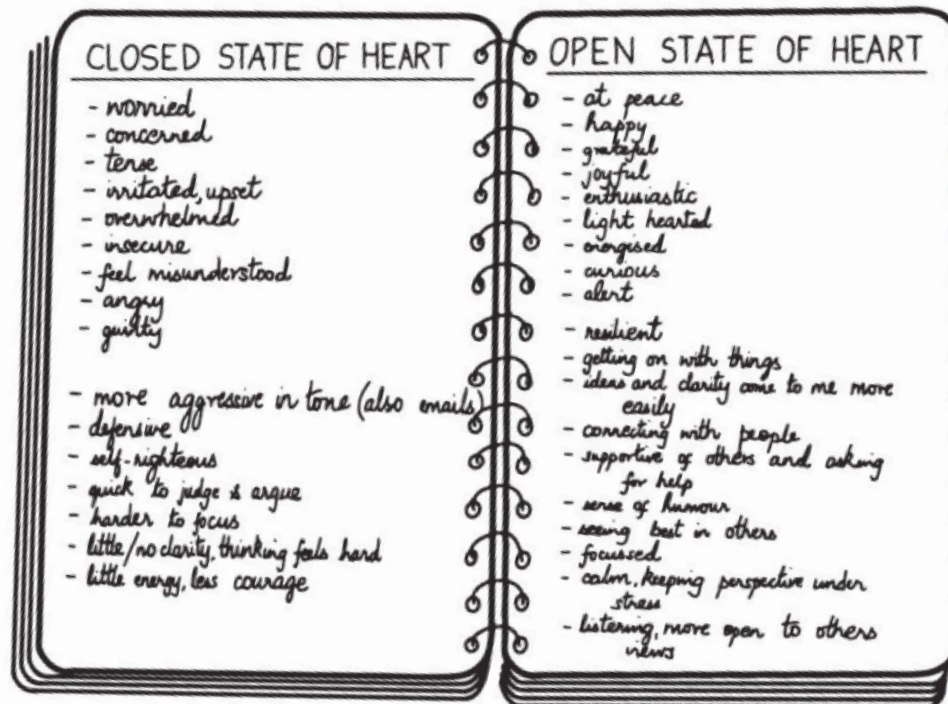 CLOSED STATE OF HEART
- worried
- concerned
- tense
- irritated, upset
- overwhelmed
- insecure
- feel misunderstood
- angry
- guilty
- more aggressive in tone (also emails)
- defensive
- self-righteous
- quick to judge & argue
- harder to focus
- little/no clarity, thinking feels hard
- little energy, less courage
OPEN STATE OF HEART
- at peace
- happy
- grateful
- joyful
- enthusiastic
- light hearted
- energised
- curious
- alert
- resilient
- getting on with things
- ideas and clarity come to me more
easily
- connecting with people
- supportive of others and asking
for help
- sense of humour
- seeing best in others
- focussed
- calm, keeping perspective under
stress
- listening, more open to others
views